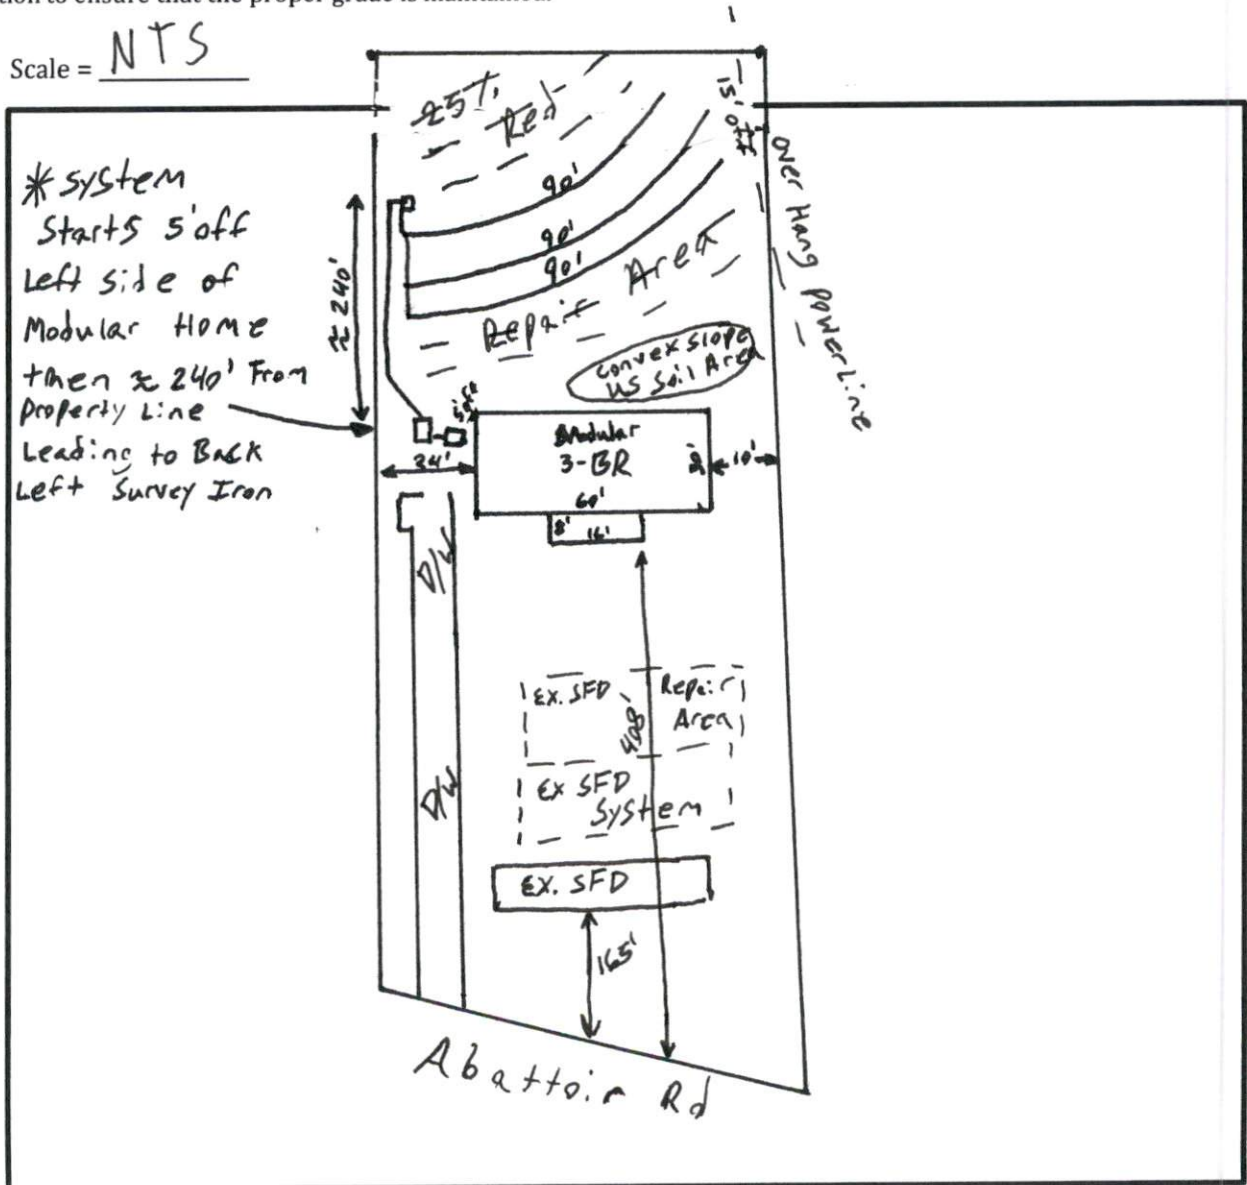 tion to ensure that the proper grade is maintained.
Scale = NTS
* System
Starts 5' off
Left side of
Modular Home
then ≈ 240' From
Property Line
Leading to Back
Left Survey Iron
25%
Red
15' off
Over Hang Power Line
90'
90'
90'
≈ 240'
Repair Area
Convex Slope
US Soil Area
Modular
3-BR
34'
10'
60'
8'
16'
D/W
D/W
408'
EX. SFD Repair
Area
EX SFD
System
EX. SFD
165'
Abattoir Rd